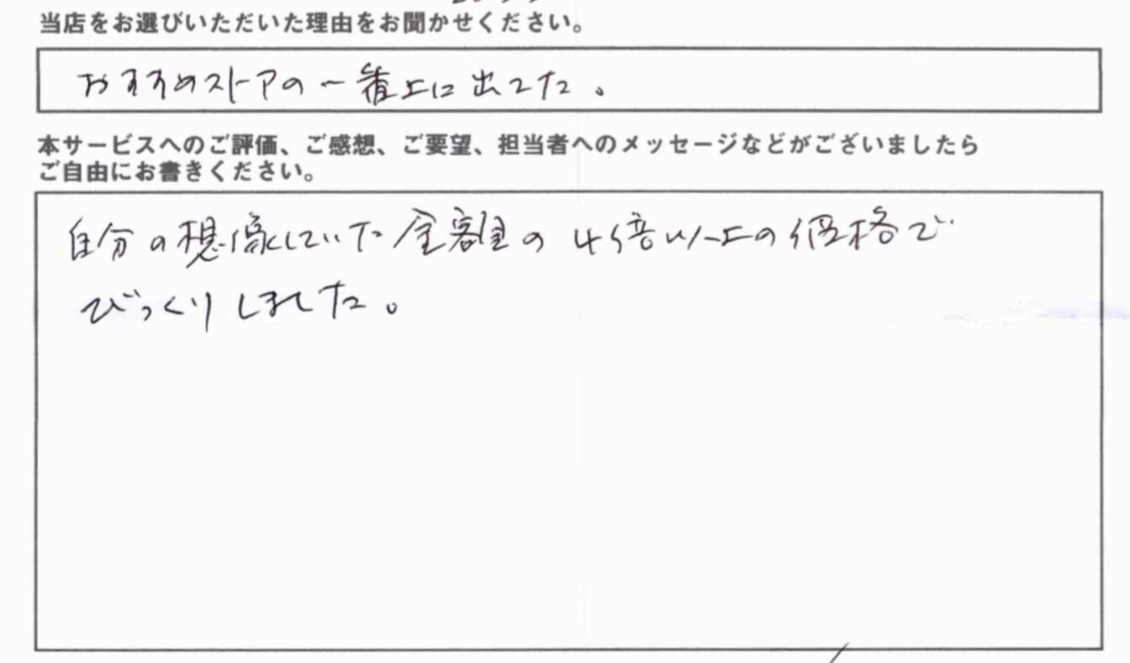 当店をお選びいただいた理由をお聞かせください。
おすすめストアの一番上に出てた。
本サービスへのご評価、ご感想、ご要望、担当者へのメッセージなどがございましたら
ご自由にお書きください。
自分の想像していた金額の4倍以上の価格で
びっくりしました。